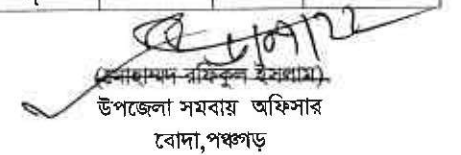 (মোহাম্মদ রফিকুল ইসলাম)
উপজেলা সমবায় অফিসার
বোদা,পঞ্চগড়